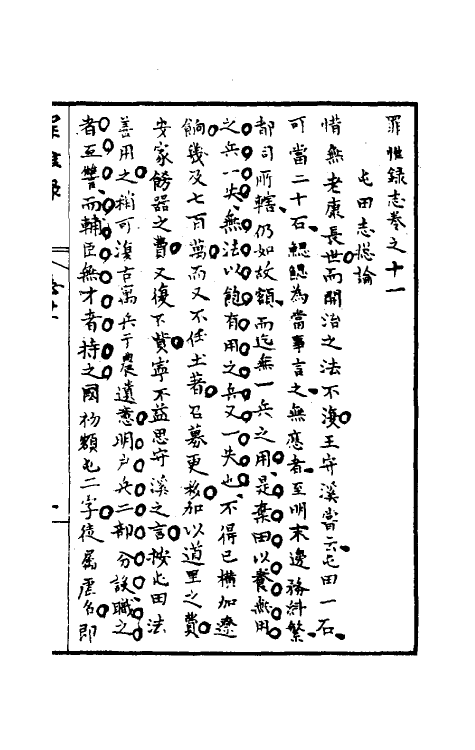 罪惟錄志卷之十一
屯田志總論
惜無老廉長世而開治之法不復王守溪嘗云屯田一石
可當二十石鰓鰓為當事言之無應者至明末邊務糾繁
都司所轄仍如故額而迄無一兵之用是棄田以養無用
之兵一失無法以飽有用之兵又一失也不得已橫加遼
餉幾及七百萬而又不任土著召募更移加以道里之費
安家餝器之費又復不貲寧不益思守溪之言按屯田法
善用之稍可復古寓兵于農遺意明戶兵二部分設職之
者互讐而輔臣無才者持之國初類屯二字徒屬虛名即
罪惟錄